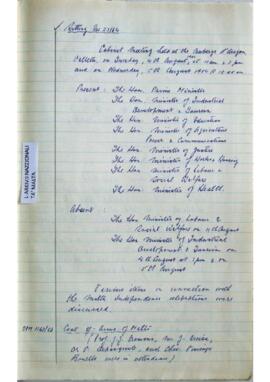 Sitting No 27/64
Cabinet Meeting held at the Auberge d'Aragon
Valletta, on Tuesday, 4th August, at 10 am & 5 pm
and on Wednesday, 5th August 1964 at 10.00 am
Present: The Hon. Prime Minister
The Hon. Minister of Industrial
Development & Tourism
The Hon. Minister of Education
The Hon. Minister of Agriculture
Power & Communications
The Hon. Minister of Justice
The Hon. Minister of Works & Housing
The Hon. Minister of Labour &
Social Welfare
The Hon. Minister of Health.
Absent:
The Hon. Minister of Labour &
Social Welfare on 4th August
The Hon. Minister of Industrial
Development & Tourism on
4th August at 5 pm & on
5th August
Various items in connection with
the Malta Independence celebrations were
discussed.
OPM 1162/63 Coat of Arms of Malta
(Prof. J.
were in attendance)
L-ARKIVJI NAZZJONALI
TA' MALTA